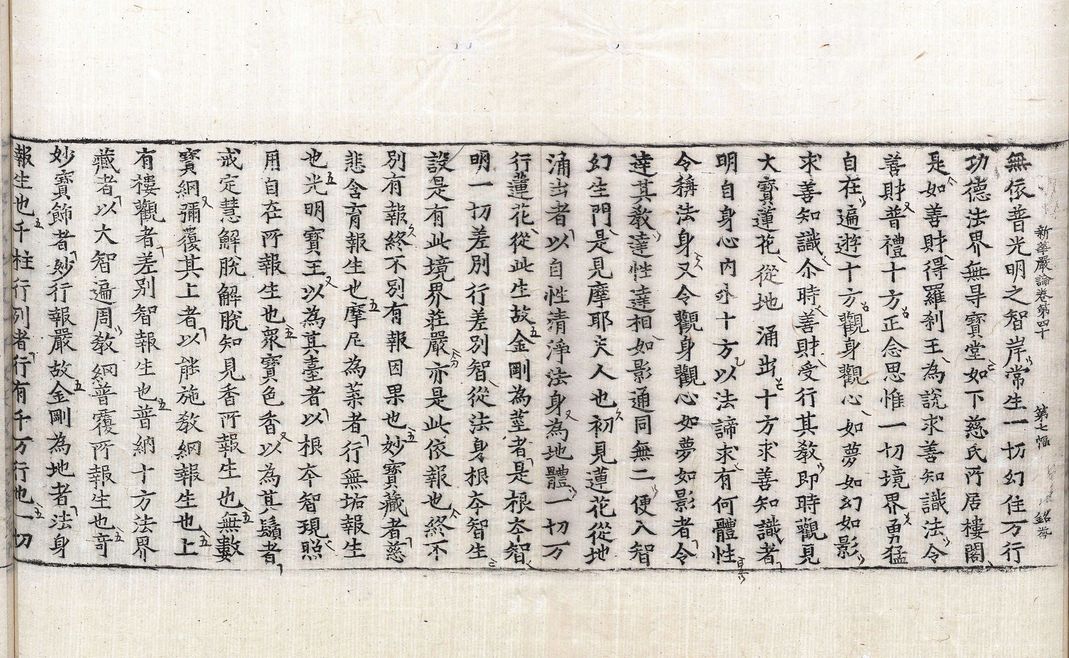 新華嚴論卷第四十 第七幅
無依普光明之智岸常生一切幻住万行
功德法界無㝵寶堂如下慈氏所居樓閣
是如善財得羅刹王為說求善知識法令
善財普禮十方正念思惟一切境界勇猛
自在遍遊十方觀身觀心如夢如幻如影
求善知識尒時善財受行其敎即時觀見
大寶蓮花從地涌出十方求善知識者
明自身心內外十方以法諦求有何體性
令稱法身又令觀身觀心如夢如影者令
達其敎達性達相如影通同無二便入智
幻生門是見摩耶夫人也初見蓮花從地
涌出者以自性清淨法身為地體一切万
行蓮花從此生故金剛為莖者是根夲智
明一切差別行差別智從法身根夲智生
設是有此境界莊嚴亦是此依報也終不
別有報終不別有報因果也妙寶藏者慈
悲含育報生也摩尼為葉者行無垢報生
也光明寶王以為其臺者以根夲智現照
用自在所報生也眾寶色香以為其鬚者
戒定慧解脫解脫知見香所報生也無數
寶網彌覆其上者以能施敎網報生也上
有樓觀者差別智報生也普納十方法界
藏者以大智遍周敎網普覆所報生也竒
妙寶飾者妙行報嚴故金剛為地者法身
報生也千柱行列者行有千万行也一切